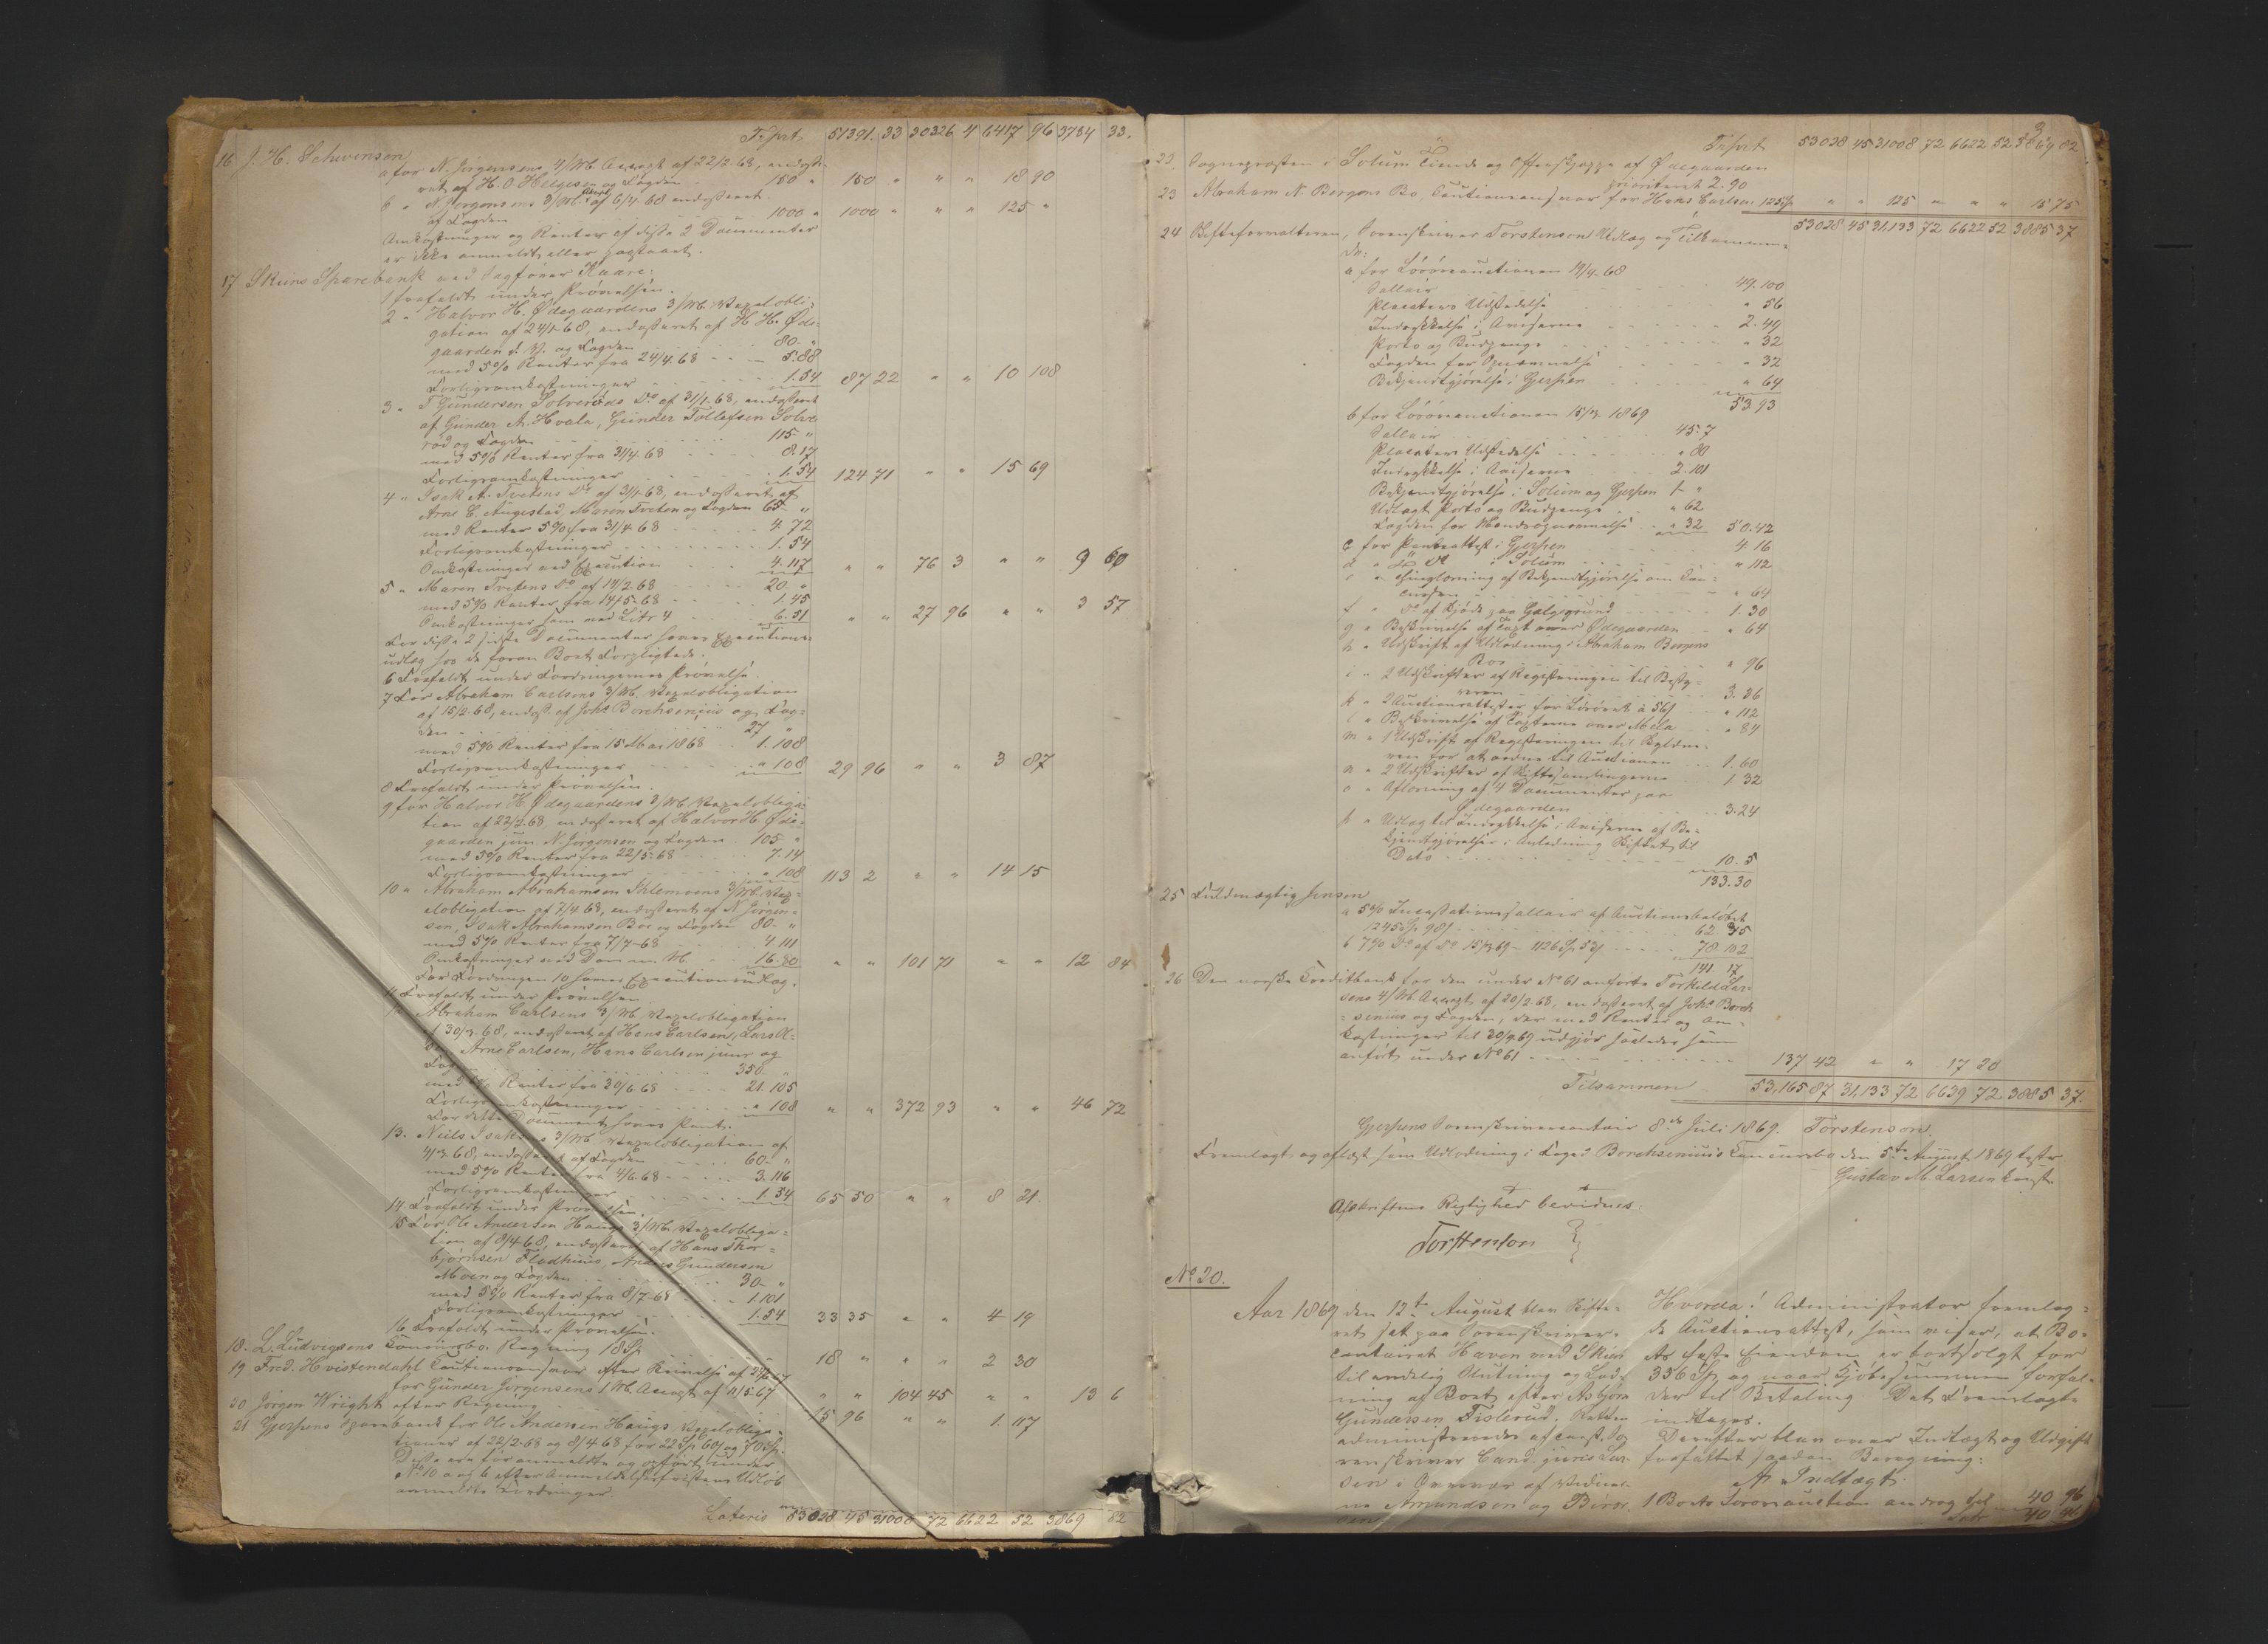 Trsprt. 51391. 33 30326 4 6417 96 3784 33.
16 J. H. Schwensen
a for N. Jørgensens 4/Md. Accept af 22/2-68, endosse-
ret af H. O. Helgesen og Fogden 150 " 150 " " " 18 90
b " N. Jørgensens 3/Md. Accept af 6/4-68 endosseret
af Fogden 1000 " 1000 " " " 125 "
Omkostninger og Renter af disse 2 Documenter
er ikke anmeldt eller paastaaet.
17 Skiens Sparebank ved Sagfører Kaare:
1 frafaldt under Prøvelsen.
2 " Halvor H. Ødegaardens 3/Md. Vexelobli-
gation af 24/1-68, endosseret af H. H. Øde-
gaarden d. Y. og Fogden 80 "
med 5% Renter fra 24/4-68 5.88
Forligsomkostninger 1.54 87 22 " " 10 108
3 " T. Gundersen Solverøds Do af 31/1-68, endosseret
af Gunder A. Hvala, Gunder Tollefsen Solve-
rød og Fogden 115 "
med 5% Renter fra 31/4-68 8.17
Forligsomkostninger 1.54 124 71 " " 15 69
4 " Isak A. Tvetens Do af 31/1-68, endosseret af
Arne C. Augestad, Maren Tveten og Fogden 65 "
med Renter 5% fra 31/4-68 4.72
Forligsomkostninger 1.54
Omkostninger ved Execution 4.117 " " 76 3 " " 9 60
5 " Maren Tvetens Do af 14/2-68 20 "
med 5% Renter fra 14/5-68 1.45
Omkostninger som ved Litr 4 6.51 " " 27 96 " " 3 57
For disse 2 sidste Documenter haves Executions-
udlæg hos de foran Boet Forpligtede.
6 Frafaldt under Fordringernes Prøvelse
7 For Abraham Carlsens 3/Md. Vexelobligation
af 15/2-68, endoss. af Johs Borchsenius og Fog-
den 27 "
med 5% Renter fra 15 Mai 1868 1.108
Forligsomkostninger " 108 29 96 " " 3 87
8 Frafaldt under Prøvelsen.
9 for Halvor H. Ødegaardens 3/Md. Vexelobliga-
tion af 22/2-68, endosseret af Halvor H. Øde-
gaarden jun. N. Jørgensen og Fogden 105 "
med 5% Renter fra 22/5-68 7.14
Forligsomkostninger " 108 113 2 " " 14 15
10 " Abraham Abrahamsen Skilemoens 3/Md. Vex-
elobligation af 7/4-68, endosseret af N. Jørgen-
sen, Isak Abrahamsen Boe og Fogden 80 "
med 5% Renter fra 7/7-68 4.111
Omkostninger ved Dom m. M. 16.80 " " 101 71 " " 12 84
For Fordringen 10 haves Executionsudlæg.
11 Frafaldt under Prøvelsen
12 Abraham Carlsens 3/Md. Vexelobligation
af 30/3-68, endosseret af Hans Carlsen, Lars
Arne Carlsen, Hans Carlsen junr og
Fogden 350 "
med 5% Renter fra 30/6-68 21.105
Forligsomkostninger " 108 " " 372 93 " " 46 72
For dette Document haves Pant.
13. Niels Isaksens 3/Md. Vexelobligation af
4/3-68, endosseret af Fogden 60 "
med 5% Renter fra 4/6-68 3.116
Forligsomkostninger 1.54 65 50 " " 8 21
14. Frafaldt under Prøvelsen.
15 For Ole Andersen Haugs 3/Md. Vexelobliga-
tion af 8/4-68, endosseret af Hans Thor-
bjørnsen Flodhuus, Anders Gundersen
Moen og Fogden 30 "
med 5% Renter fra 8/7-68 1.101
Forligsomkostninger 1.54 33 35 " " 4 19
16 Frafaldt under Prøvelsen.
18. L. Ludvigsens Concursbo. Regning 18 Sp. 18 " " " 2 30
19 Fred. Hvistendahl Cautionsansvar efter Kjendelse af 24/6-69
for Gunder Jørgensens 1 Md. Accept af 11/5-67 " " 104 45 " " 13 6
20 Jørgen Wright efter Regning 15 96 " " 1. 117
21 Gjerpens Sparebank for Ole Andersen Haugs Vexelobliga-
tioner af 22/2-68 og 8/4-68 for 22 Sp 60 s og 70 Sp.
Disse ere før anmeldte og opført under
No 10 a og b efter Anmeldelsesfristens Udløb
anmeldte Fordringer.
Lateris 53028 45 31008 72 6622 52 3869 82
3
Trsprt 53028 45 31008 72 6622 52 3869 82
22. Sognepræsten i Solum Tiende og Offerskjæppe af Ødegaarden
prioriteret 2.90
23 Abraham N. Bergans Bo, Cautionsansvar for Hans Carlsen 125 Sp " " 125 " " " 15 75
53028 45 31,133 72 6622 52 3885 37
24 Skifteforvalteren, Sorenskriver Torstenson Udlæg og Tilkommen-
de:
a for Løsøreauctionen 19/9-68
Sallair 49.100
Placaters Udstedelse " 56
Indrykkelse i Aviserne 2.49
Porto og Budpenge " 32
Fogden for Opnævnelse " 32
Bekjendtgjørelse i Gjerpen " 64
53.93
b for Løsøreauctionen 15/3 1869
Sallair 45.7
Placaters Udstedelse " 80
Indrykkelse i Aviserne 2.101
Bekjendtgjørelse i Solum og Gjerpen 1 "
Udlagt Porto og Budpenge " 62
Fogden for Mændsopnævnelse " 32 50.42
c for Panteattest i Gjerpen 4 16
d " Do Do i Solum " 112
e " Thinglæsning af Bekjendtgjørelse om Con-
cursen " 64
f " Do af Skjøde paa Galgegrund 1.30
g " Beskrivelse af Taxt over Ødegaarden " 64
h " Udskrift af Udlodning i Abraham Bergans
Bo " 96
i " 2 Udskrifter af Registeringen til Besty-
reren 3.36
k " 2 Auctionsattester for Løsøret à 56 s " 112
l " Beskrivelse af Taxterne over Mela " 84
m " 1 Udskrift af Registeringen til
ren for at ordne til Auctionen 1.60
n " 2 Udskrifter af Skiftesamlingerne 1.32
o " Aflæsning af 4 Documenter paa
Ødegaarden 3.24
p " Udlæg til Indrykkelse i Aviserne af Be-
kjendtgjørelser i Anledning Skiftet til
Dato 10.5
133.30
25 Fuldmægtig Jensen
a 5% Incassationssallair af Auctionsbeløbet
1245 Sp 98 s 62 35
b 7% Do af Do 15/3 69 - 1126 Sp 53 s 78 102
141. 17
26 Den norske Creditbank for den under No 61 anførte Torkild Lar-
sens 4/Md Accept af 20/2-68, endosseret af Johs Borch-
senius og Fogden, der med Renter og Om-
kostninger til 30/4-69 udgjør saaledes som
anført under No 61 137 42 " " 17 20
Tilsammen 53,165 87 31,133 72 6639 72 3885 37.
Gjerpens Sorenskrivercontoir 8de Juli 1869. Torstenson.
Fremlagt og oplæst som Udlodning i Foged Borchsenius's Concursbo den 5te August 1869 testr
Gustav M. Larsen const.
Afskriftens Rigtighed bevidnes:
Torstenson
No 20.
Aar 1869 den 12te August blev Skifte-
ret sat paa Sorenskriver-
contoiret Haven ved Skien
til endelig Slutning og Lod-
ning af Boet efter Asbjørn
Gundersen Fislerud. Retten
administreredes af const. So-
renskriver Cand. juris Lar-
sen i Overvær af Vidner-
ne Amundsen og Peder-
sen
Hvorda! Administrator fremlag-
de Auctionsattest, som viser, at Bo-
ets faste Eiendom er bortsolgt for
336 Sp. og naar Kjøbesummen forfal-
der til Betaling. Det Fremlagte
indtages.
Derefter blev over Indtægt og Udgift
forfattet saadan Beregning:
A. Indtægt.
1 Boets Løsøreauction androg til 40 96
Latr 40 96